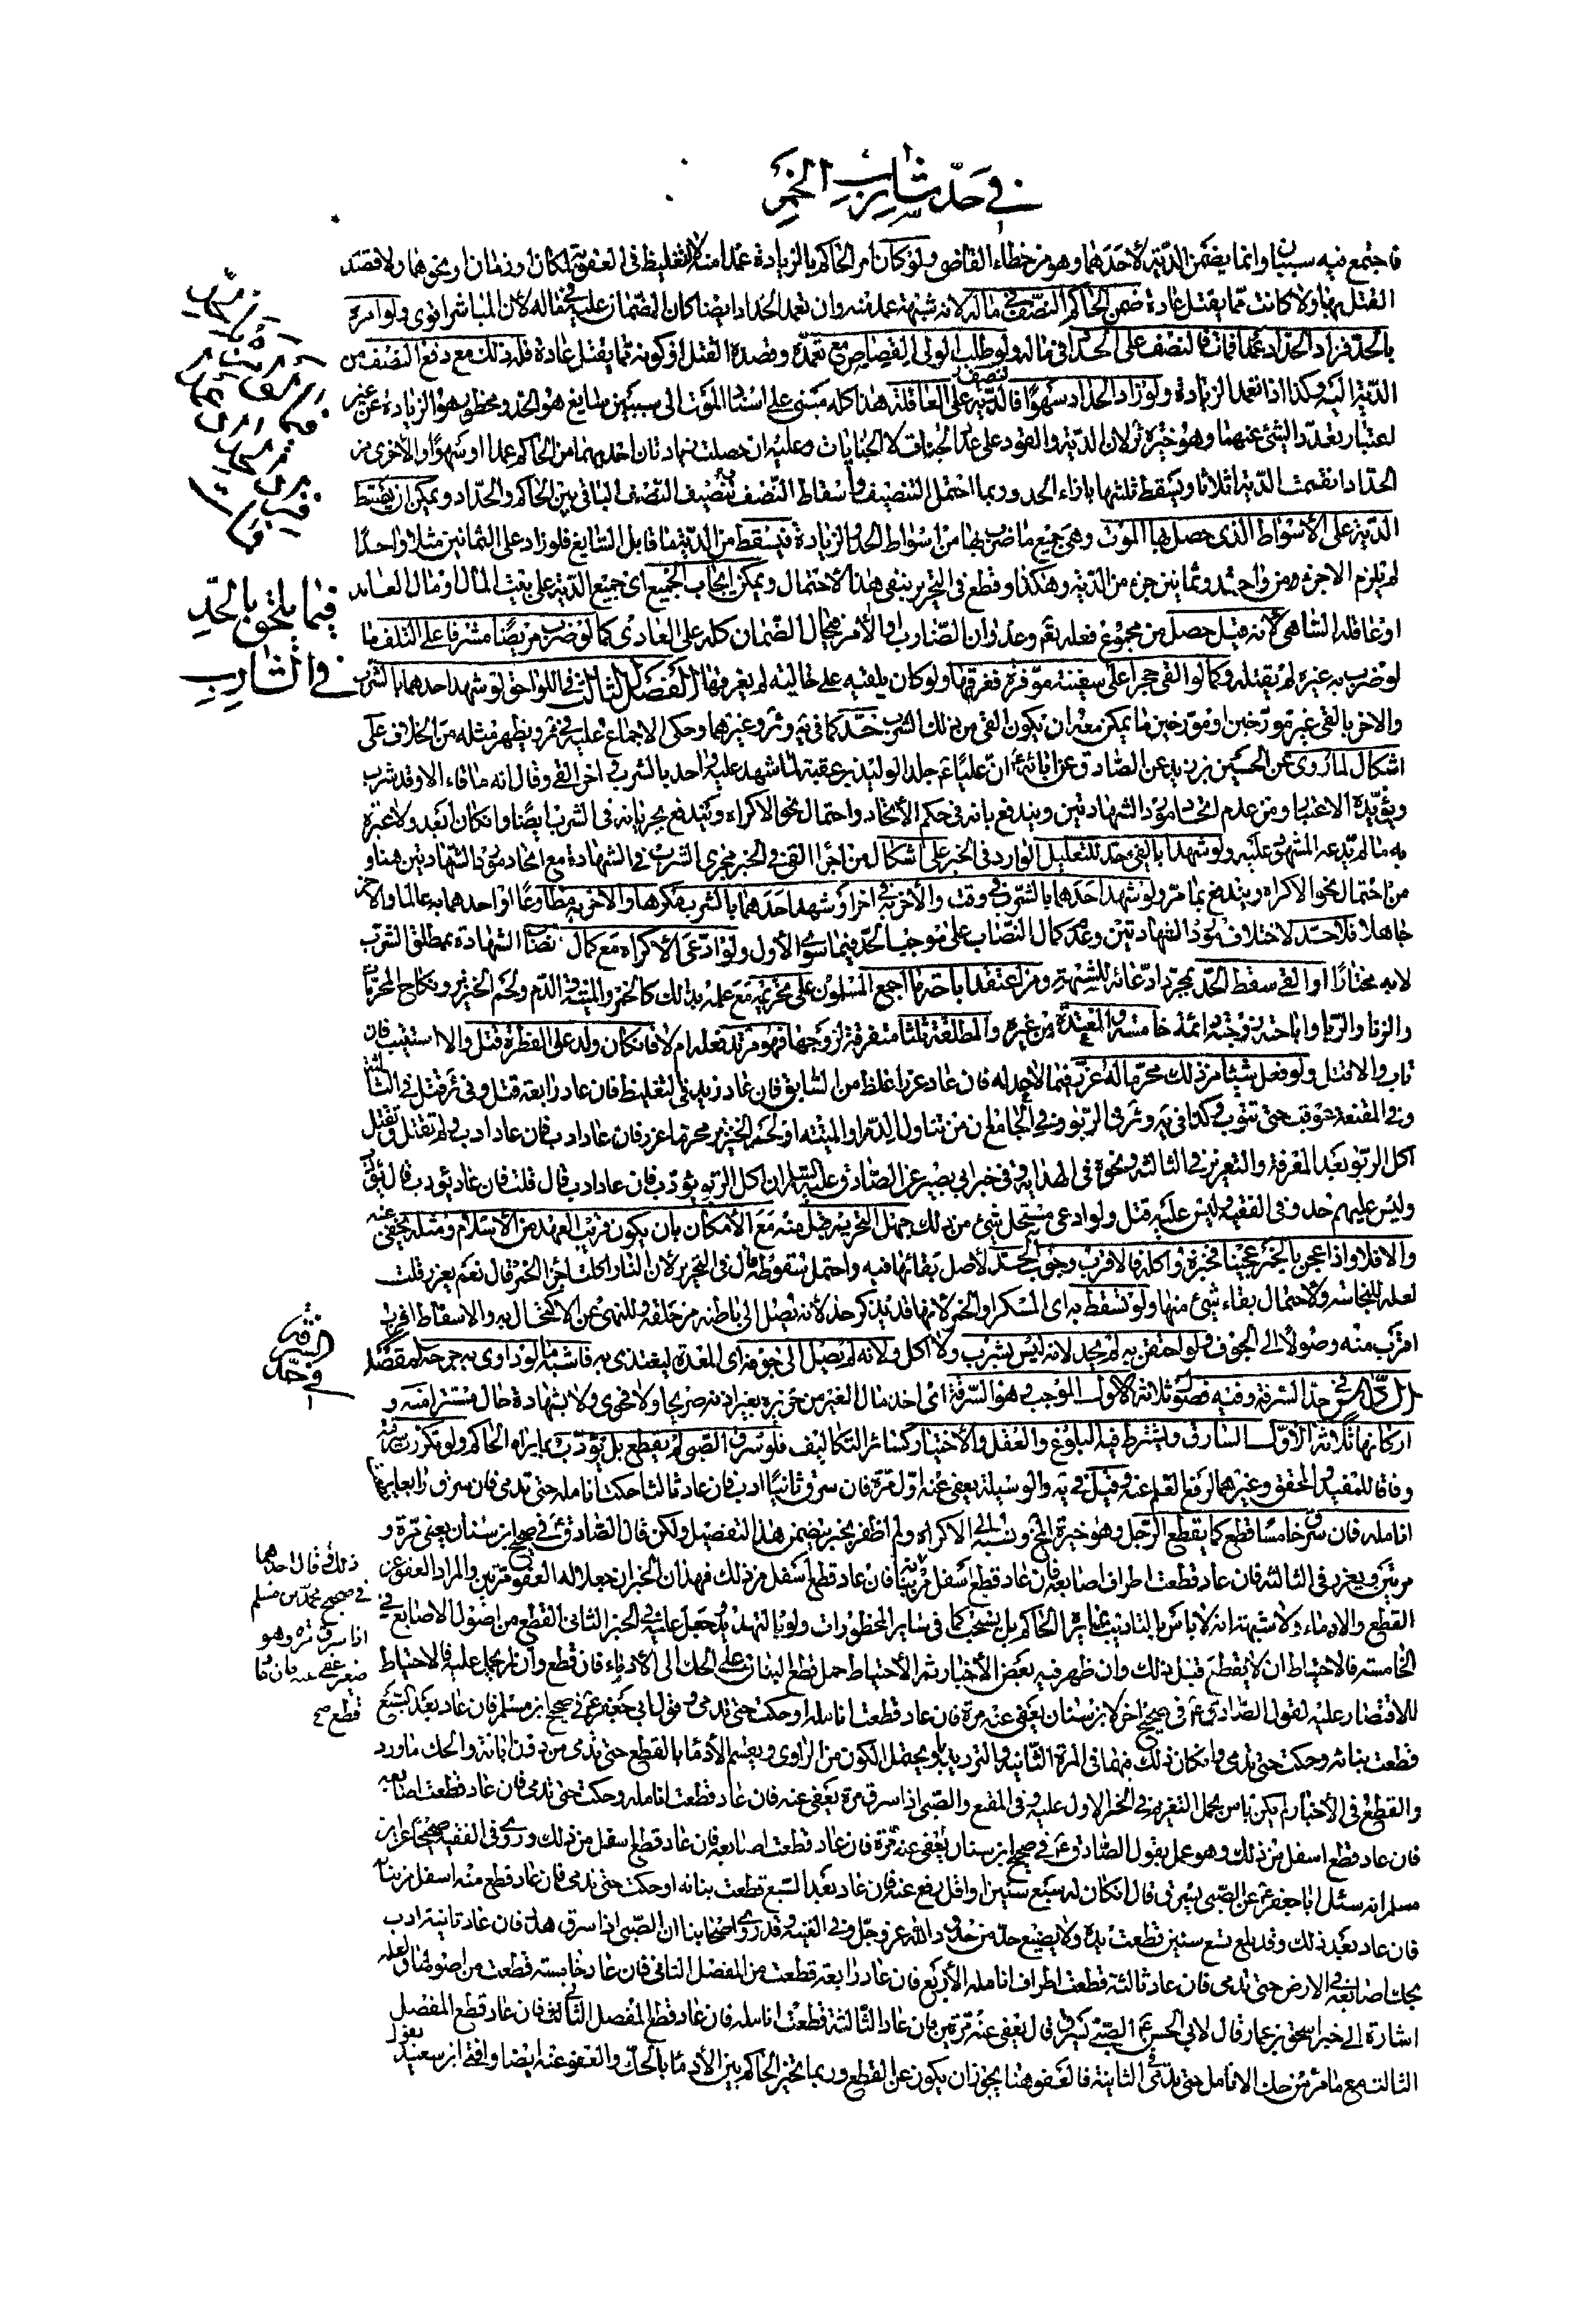 في حدّ شارب الخمر
فاجتمع فيه سببان وانما يضمن الدية لأحدهما وهو من خطاء القاضي ولو كان امر الحاكم بالزيادة عمدا منه لا لتغليظ في العقوبة لمكان او زمان او نحوهما ولا قصد
القتل بها ولا كانت مما يقتل عادة ضمن الحاكم النصف في ماله لانه شبهة عمد منه وان تعمد الحداد ايضا كان الضمان عليه في ماله لأن المباشر اقوى ولو امره
بالحد فزاد الحداد عمدا فمات فالنصف على الحداد في ماله ولو طلب الولي القصاص مع تعمده وقصده القتل او كونه مما يقتل عادة فله ذلك مع دفع النصف من
الدية اليه وكذا اذا تعمد الزيادة ولو زاد الحداد سهوًا فالدية نصف على العاقلة هذا كله مبني على استناد الموت الى سببين سايغ هو الحد ومحظور هو الزيادة من غير
اعتبار تعدد الشئ عنهما وهو خيرة لان الدية والقود على عدد الجناة لا الجنايات وعليه ان حصلت زيادتان احديهما من الحاكم عمدا او سهوًا والأخرى من
الحداد انقسمت الدية اثلاثا ويسقط ثلثها بازاء الحد وربما احتمل التنصيف واسقاط النصف تنصيف النصف الباقي بين الحاكم والحداد ويمكن ان يقسط
الدية على الأسواط الذي حصل بها الموت وهي جميع ما ضرب بها من اسواط الحد والزيادة فيسقط من الدية ما قابل السايغ فلو زاد على الثمانين مثلا واحدًا
لم يلزم الا جزء من واحد وثمانين جزء من الدية وهكذا وقطع في التحرير بنفي هذا الاحتمال ويمكن ايجاب الجميع اي جميع الدية على بيت المال او مال العامد
او عاقلة الساهي لانه قتل حصل من مجموع فعله تعم وعدوان الضارب والأمر فيحال الضمان كله على العادي كما لو ضرب مريضًا مشرفا على التلف ما
لو ضرب به غيره لم يقتله وكما لو القى حجرا على سفينة موقرة فغرقها ولو كان يلقيه على خالية لم يغرقها الفصل الثالث في اللواحق لو شهد احدهما بالشرب
والاخر بالقئ غير مؤرخين او مؤرخين بما يمكن معه ان يكون القئ من ذلك الشرب حد كما في ية وئر وغيرهما وحكى الاجماع عليه في ئر ويظهر مثله من الخلاف على
اشكال لما روي عن الحسين بن زيد عن الصادق عن ابائه ع ان عليًا ع جلد الوليد بن عقبة لما شهد عليه واحد بالشرب واخر القئ وقال انه ما قاء الا وقد شرب
ويؤيده الاعتبار ومن عدم اتحاد مورد الشهادتين ويندفع بانه في حكم الأتحاد واحتمال نحو الاكراه ويندفع بجريانه في الشرب ايضًا وان كان ابعد ولا عبرة
به ما لم يدعه المشهود عليه ولو شهدا بالقئ حد للتعليل الوارد في الخبر على اشكال من اجراء القئ في الخبر مجرى الشرب في الشهادة مع اتحاد مورد الشهادتين هنا و
من احتمال نحو الاكراه ويندفع بما مر ولو شهد احدهما بالشرب في وقت والأخر به في اخر او شهد احدهما بالشرب مكرها والاخر به مطاوعًا او احدهما به عالما والاخر
جاهلا فلا حد لاختلاف مورد الشهادتين وعدم كمال النصاب على موجب الحد فيما سوى الأول ولو ادعى الاكراه مع كمال نصاب الشهادة بمطلق الشرب
لابه مختارًا او القئ سقط الحد بمجرد ادعائه للشبهة ومن اعتقد اباحة ما اجمع المسلمون على تحريمه مع علمه بذلك كالخمر والميتة والدم ولحم الخنزير ونكاح المحرمات
والزنا والربا واباحة زوجة دائمة خامسة والمعتدة من غيره والمطلقة ثلثا متفرقة لزوجها فهو مرتد فعله ام لا فان كان ولد على الفطرة قتل والا استتيب فان
تاب والا قتل ولو فعل شيئا من ذلك محرما له عزر فيما لا حد له فان عاد عزر اغلظ من السابق فان عاد زيد في التغليظ فان عاد رابعة قتل وفي ئر قتل في الثالثة
وفي المقنعة عوقب حتى يتوب وكذا في ية وئر في الربو وفي الجامع ان من تناول الدم او الميتة او لحم الخنزير محرما عزر فان عاد ادب فان عاد ادب ولم يقتل ويقتل
اكل الربو بعد المعرفة والتعزير في الثالثة ونحوه في الهداية وفي خبر ابي بصير عن الصادق عليه السلم ان اكل الربو يؤدب فان عاد ادب قال قلت فان عاد يؤدب قال يؤدب
وليس عليهم حد وفي الفقيه ليس عليه قتل ولو ادعى مستحل شئ من ذلك جهل التحريم قبل منه مع الأمكان بان يكون قريب العهد من الاسلام ومثله يخفى عنه
والا فلا واذا عجن بالخمر عجينا فخبزه واكله فالاقرب وجوب الحد لأصل بقائها فيه واحتمل سقوطه قال في التحرير لأن النار اكلت اجزاء الخمر قال نعم يعزر قلت
لعله للنجاسة ولاحتمال بقاء شئ منها ولو تسقط به اي المسكر او الخمر لانها قد يذكر حد لأنه يصل الى باطنه من حلقه وللنهي عن الاكتحال به والاسقاط اقرب
اقرب منه وصولا الى الجوف ولو احتقن به لم يحد لانه ليس بشرب ولا اكل ولانه لم يصل الى جوفه اي المعدة ليغتذى به فاشبه ما لو داوى به جرحه المقصد
الخامس في حد السرقة وفيه فصول ثلاثة الأول الموجب وهو السرقة اي اخذ مال الغير من حرزه بغير اذنه صريحا ولا فحوى ولا بشهادة حال مستترا منه و
اركانها ثلاثة الأول السارق ويشترط فيه البلوغ والعقل والأختيار كسائر التكاليف فلو سرق الصبي لم يقطع بل يؤدب بما يراه الحاكم ولو تكررت سرقته
وفاقا للمفيد والمحقق وغيرهما لرفع القلم عنه وقيل في ية والوسيلة يعفى عنه اول مرة فان سرق ثانيًا ادب فان عاد ثالثا حكت انامله حتى تدمى فان سرق رابعا
انامله فان سرق خامسًا قطع كما يقطع الرجل وهو خيرة ونسبه الى الاكثر ولم اظفر بخبر يتضمن هذا التفصيل ولكن قال الصادق ع في صحيح ابن سنان يعفى مرة و
مرتين ويعزر في الثالثة فان عاد قطعت اطراف اصابعه فان عاد قطع اسفل من بنانه فان عاد قطع اسفل من ذلك فهذان الخبران جعلا له العفو مرتين والمراد العفو عن
القطع والادماء ولا شبهة انه لا باس بالتاديب بما يراه الحاكم بل يستحب كما في ساير المحظورات ولو بالتهديد وجعل عليه في الخبر الثاني القطع من اصول الاصابع في
الخامسة فالاحتياط ان لا يقطع قبل ذلك وان ظهر فيه بعض الأخبار ثم الأحتياط حمل قطع البنان على الحك الى الأدماء فان قطع وان لم يحمل عليه فالاحتياط
للاقتصار عليه لقول الصادق ع في صحيح اخر لابن سنان يعفى عنه مرة فان عاد قطعت انامله او حكت حتى تدمى وقول ابي جعفر ع في صحيح ابن مسلم فان عاد بعد السبع
قطعت بنانه وحكت حتى تدمى وان كان ذلك فيهما في المرة الثانية والترديد باو يحتمل الكون من الراوي ويعم الأدماء بالقطع حتى تدمى من دون ابانة والحك ما ورد
والقطع في الأخبار لم يكن باس بحمل التعزير في الخبر الاول عليه وفي المقنع والصبي اذا سرق مرة يعفى عنه فان عاد قطعت انامله وحكت حتى تدمى فان عاد قطعت اصابعه
فان عاد قطع اسفل من ذلك وهو عمل بقول الصادق ع في صحيح ابن سنان يعفى عنه مرة فان عاد قطعت اصابعه فان عاد قطع اسفل من ذلك وروى في الفقيه صحيحًا عن ابن
مسلم انه سئل ابا جعفر ع عن الصبي يسرق قال ان كان له سبع سنين او اقل رفع عنه فان عاد بعد السبع قطعت بنانه او حكت حتى تدمى فان عاد قطع منه اسفل من بنانه
فان عاد بعد ذلك وقد بلغ تسع سنين قطعت يده ولا يضيع حد من حدود الله عز وجل وفي الغنية وقد روى اصحابنا ان الصبي اذا سرق هدد فان عاد ثانية ادب
بحك اصابعه في الارض حتى تدمى فان عاد ثالثة قطعت اطراف انامله الأربع فان عاد رابعة قطعت من المفصل الثاني فان عاد خامسة قطعت من اصولها ولعله
اشارة الى خبر اسحق بن عمار قال لأبي الحسن ع الصبي يسرق قال يعفى عنه مرتين فان عاد الثالثة قطعت انامله فان عاد قطع المفصل الثاني فان عاد قطع المفصل
الثالث مع ما مر من حك الانامل حتى تدمى في الثانية فالعفو هنا يجوز ان يكون عن القطع وربما تخير الحاكم بين الأدماء بالحك والعفو عنه ايضا وافتى ابن سعيد
فيما يلحق بالحدّ
في الشارب
السرقة
في حدّ
ذلك وقال احدهما
في صحيح محمد بن مسلم
اذا سرق مرة وهو
صغير عفى عنه فان عاد
قطع صح